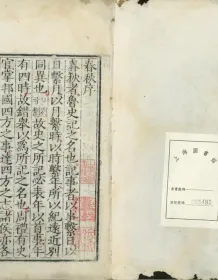 春秋序
春秋者魯史記之名也記事者以事繫日以
日繫月以月繫時以時繫年所以紀遠近別
同異也故史之所記必表年以首事年
有四時故錯舉以為所記之名也周禮有史
官掌邦國四方之事達四方之志諸侯亦各
上海圖書館